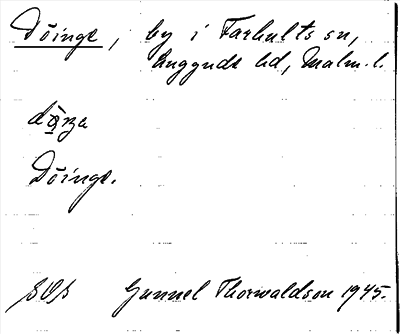 Döinge, by i Farhults sn,
Luggude hd, Malm. l.
Döinge.
SOS Gunnel Thorwaldson 1945.